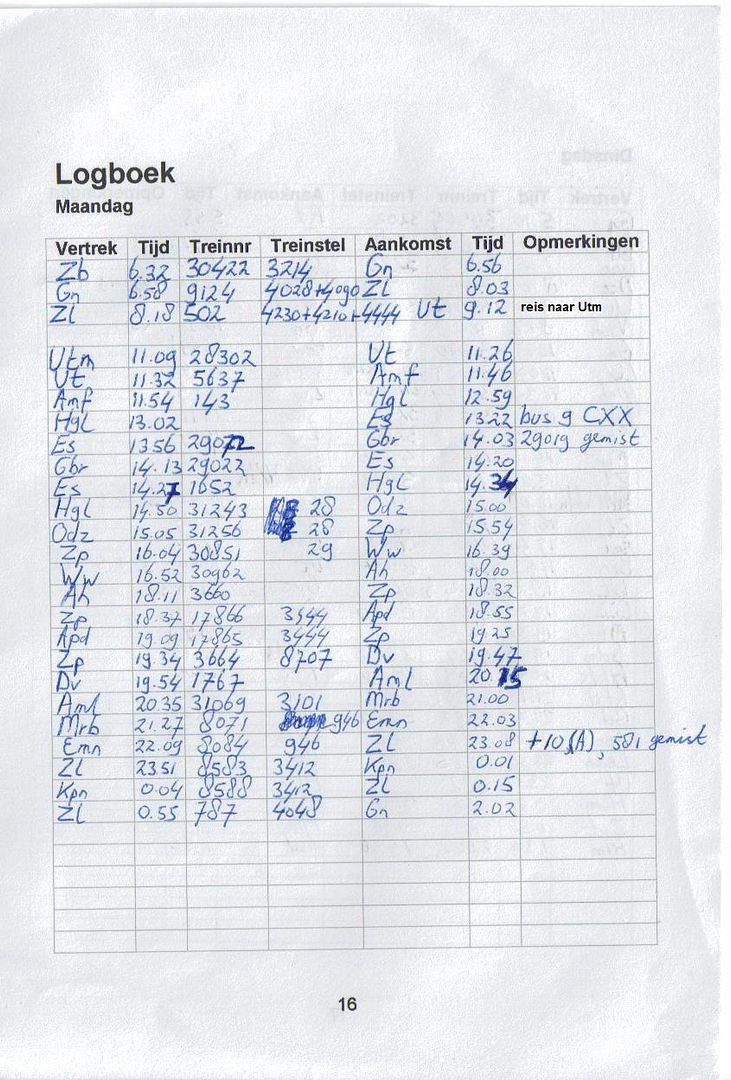 Logboek
Maandag
Vertrek Tijd Treinnr Treinstel Aankomst Tijd Opmerkingen
Zb 6.32 30422 3214 Gn 6.56
Gn 6.58 9124 4028+4090 Zl 8.03
Zl 8.18 502 4230+4210+4444 Ut 9.12 reis naar Utm
Utm 11.09 28302 Ut 11.26
Ut 11.32 5637 Amf 11.46
Amf 11.54 143 Hgl 12.59
Hgl 13.02 Es 13.22 bus 9 CXX
Es 13.56 29072 Gbr 14.03 29019 gemist
Gbr 14.13 29022 Es 14.20
Es 14.27 1652 Hgl 14.34
Hgl 14.50 31243 28 Odz 15.00
Odz 15.05 31256 28 Zp 15.54
Zp 16.04 30851 29 Ww 16.39
Ww 16.52 30962 Ah 18.00
Ah 18.11 3660 Zp 18.32
Zp 18.37 17866 3444 Apd 18.55
Apd 19.09 17865 3444 Zp 19.25
Zp 19.34 3664 8707 Dv 19.47
Dv 19.54 1767 Aml 20.15
Aml 20.35 31069 3101 Mrb 21.00
Mrb 21.27 8071 946 Emn 22.03
Emn 22.09 8084 946 Zl 23.08 +10 (A), 581 gemist
Zl 23.51 8583 3412 Kpn 0.01
Kpn 0.04 8588 3412 Zl 0.15
Zl 0.55 787 4048 Gn 2.02
16